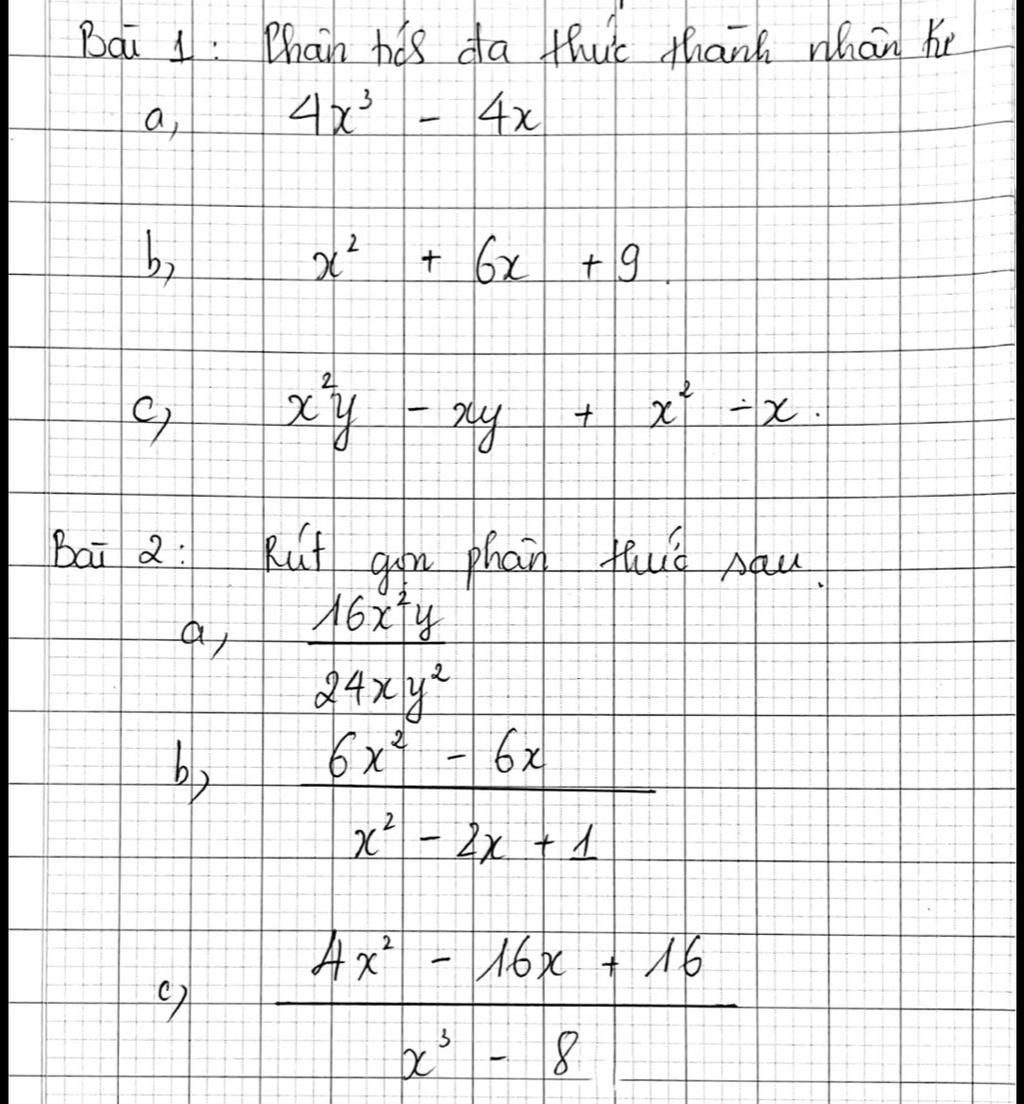 Bài 1: Phân tích đa thức thành nhân tử
a, 4x³ - 4x
b, x² + 6x + 9.
c, x²y - xy + x² - x.
Bài 2: Rút gọn phân thức sau.
a, 16x²y
24xy²
b, 6x² - 6x
x² - 2x + 1
c, 4x² - 16x + 16
x³ - 8